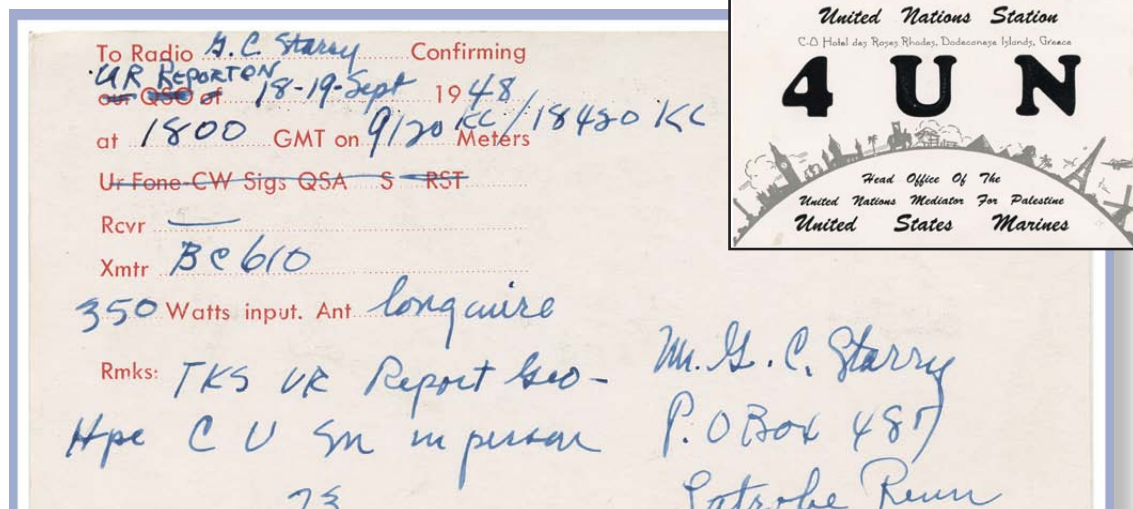 To Radio G. C. Starry Confirming
UR REPORT ON
our QSO of 18-19-Sept 1948
at 1800 GMT on 9120 KC/18420 KC Meters
Ur Fone-CW Sigs QSA S RST
Rcvr
Xmtr BC610
350 Watts input. Ant longwire
Rmks: TKS UR Report Geo-
Hpe C U Sn in person
73
Mr. G. C. Starry
P.O Box 487
Latrobe Penn
United Nations Station
C-O Hotel des Roses Rhodes, Dodecanese Islands, Greece
4 U N
Head Office Of The
United Nations Mediator For Palestine
United States Marines